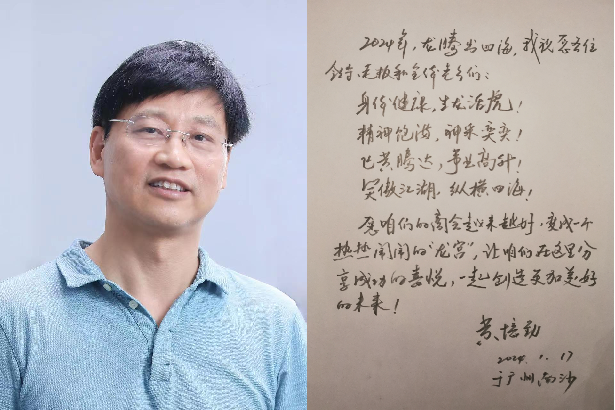 2024年,龙腾四海,我祝愿各位
老板和全体老乡们:
身体健康,生龙活虎!
精神饱满,神采奕奕!
飞黄腾达,事业高升!
笑傲江湖,纵横四海!
愿咱们的商会越来越好,变成一个
热热闹闹的“龙宫”,让咱们在这里分
享成功的喜悦,一起创造更加美好
的未来!
黄培劲
2024.1.17
于广州南沙